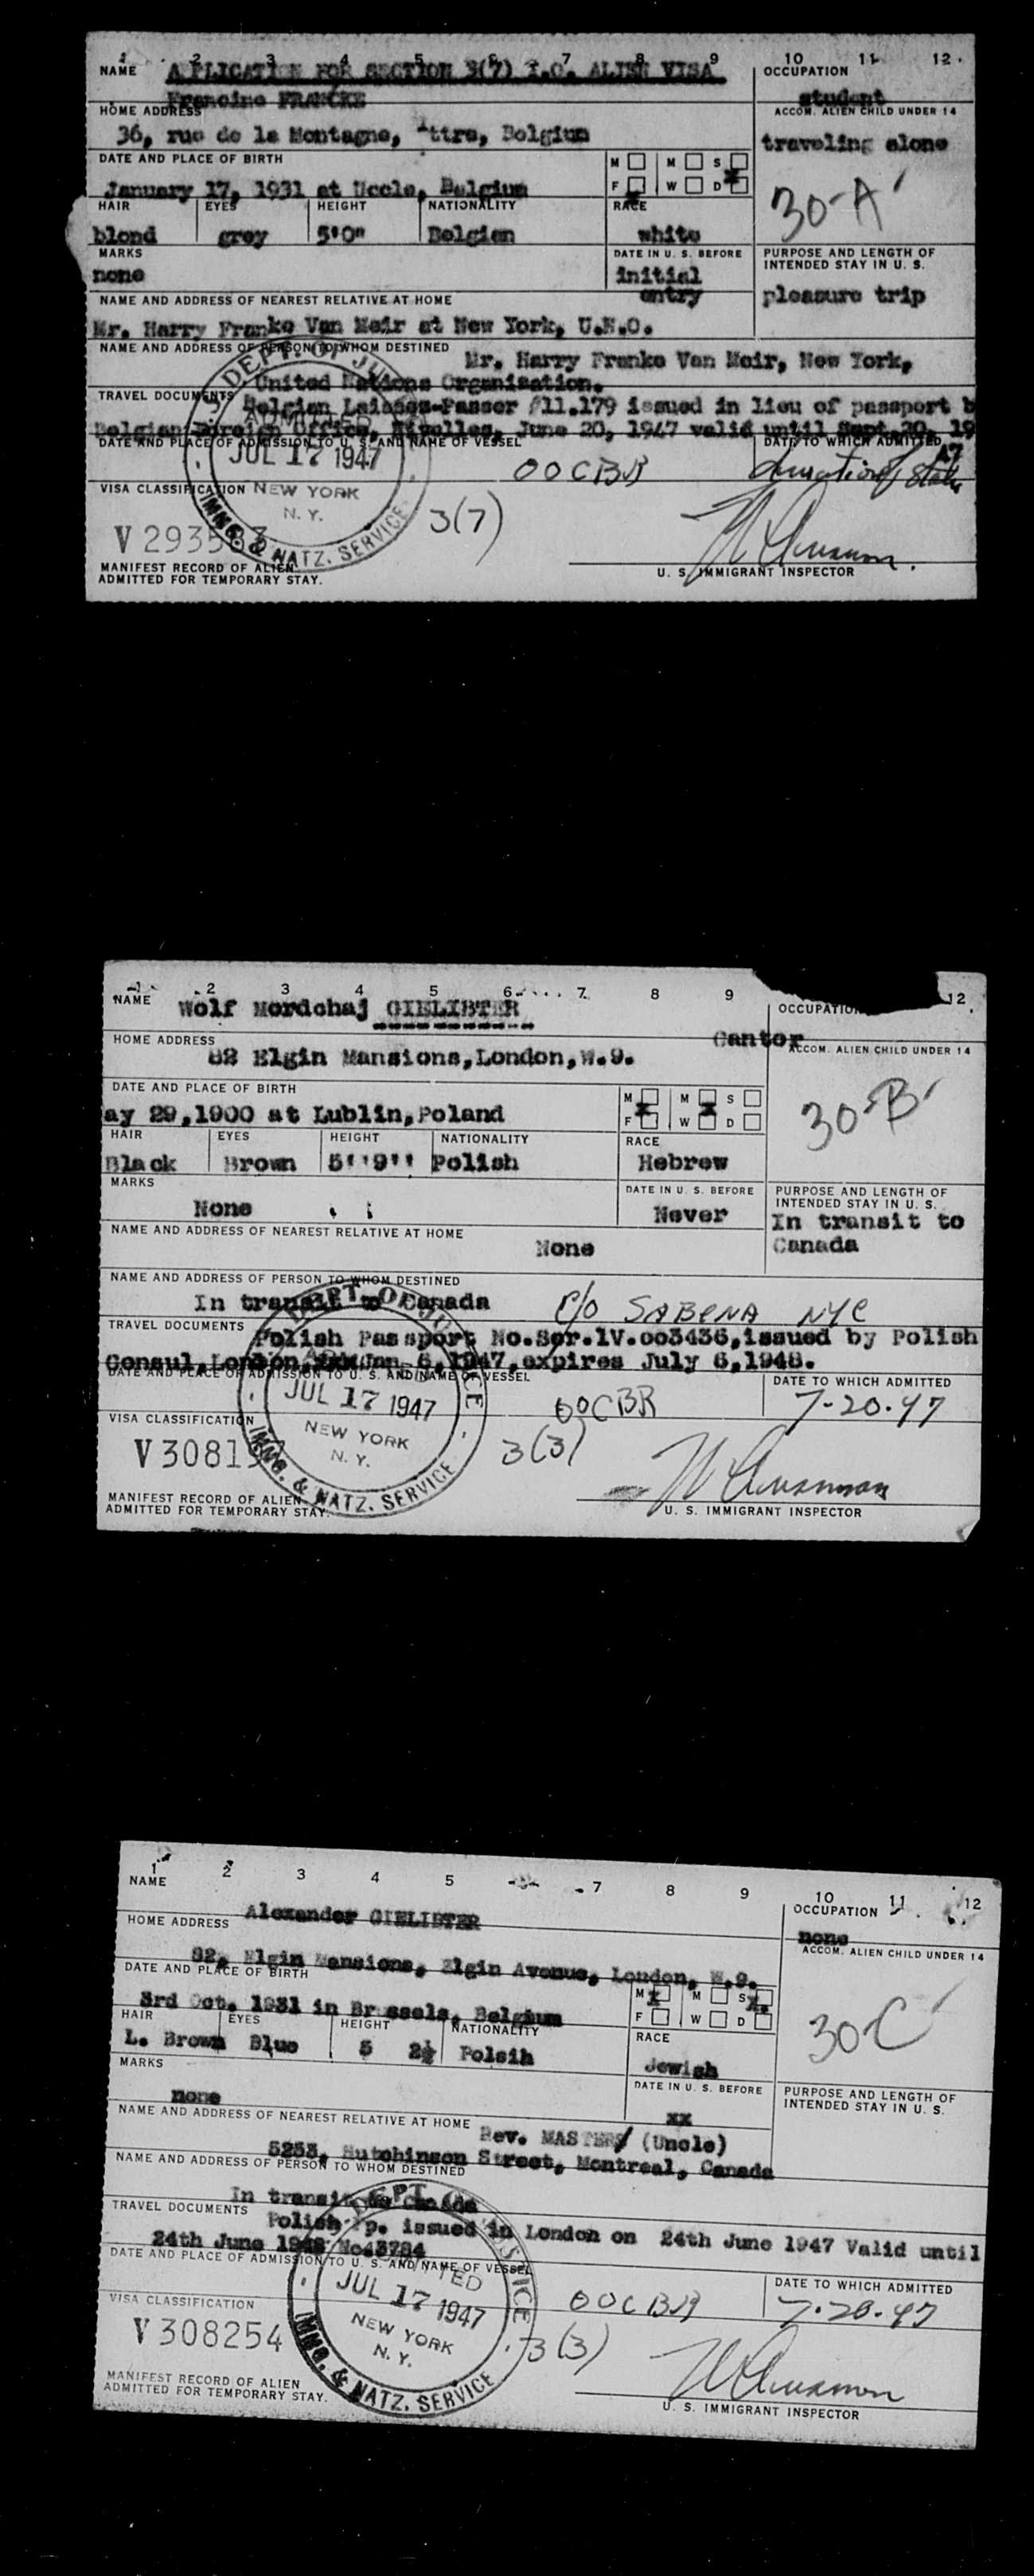 1 2 3 4 5 6 7 8 9 10 11 12
NAME APPLICATION FOR SECTION 3(7) I.O. ALIEN VISA OCCUPATION
Francine FRANCKE student
HOME ADDRESS ACCOM. ALIEN CHILD UNDER 14
36, rue de la Montagne, ttre, Belgium traveling alone
DATE AND PLACE OF BIRTH M M S
January 17, 1931 at Uccle, Belgium F W D
30-A'
HAIR EYES HEIGHT NATIONALITY RACE
blond grey 5'0" Belgian white
MARKS DATE IN U. S. BEFORE PURPOSE AND LENGTH OF
INTENDED STAY IN U. S.
none initial entry pleasure trip
NAME AND ADDRESS OF NEAREST RELATIVE AT HOME
Mr. Harry Franke Van Meir at New York, U.N.O.
NAME AND ADDRESS OF PERSON TO WHOM DESTINED Mr. Harry Franke Van Meir, New York,
United Nations Organisation.
TRAVEL DOCUMENTS Belgian Laissez-Passer #11.179 issued in lieu of passport b
Belgian Foreign Office, Nivelles, June 20, 1947 valid until Sept. 20, 19
47
DATE AND PLACE OF ADMISSION TO U. S. AND NAME OF VESSEL DATE TO WHICH ADMITTED
DEPT. OF JUS
JUL 17 1947
NEW YORK
N. Y.
IMMG. & NATZ. SERVICE
OOCBR duration of status
VISA CLASSIFICATION 3(7)
V 293583
MANIFEST RECORD OF ALIEN
ADMITTED FOR TEMPORARY STAY.
U. S. IMMIGRANT INSPECTOR
1 2 3 4 5 6 7 8 9 12
NAME Wolf Mordchaj GIELIBTER OCCUPATION
HOME ADDRESS Cantor ACCOM. ALIEN CHILD UNDER 14
82 Elgin Mansions, London, W.9.
DATE AND PLACE OF BIRTH M M S
ay 29,1900 at Lublin, Poland F W D
30-B'
HAIR EYES HEIGHT NATIONALITY RACE
Black Brown 5''9'' Polish Hebrew
MARKS DATE IN U. S. BEFORE PURPOSE AND LENGTH OF
INTENDED STAY IN U. S.
None Never In transit to
Canada
NAME AND ADDRESS OF NEAREST RELATIVE AT HOME
None
NAME AND ADDRESS OF PERSON TO WHOM DESTINED
In transit to Canada C/O SABENA NYC
TRAVEL DOCUMENTS Polish Passport No.Ser.1V.003436, issued by Polish
Consul, London, xxx Jan 6, 1947, expires July 6, 1948.
DATE AND PLACE OF ADMISSION TO U. S. AND NAME OF VESSEL DATE TO WHICH ADMITTED
DEPT. OF
JUL 17 1947
NEW YORK
N. Y.
IMMG. & NATZ. SERVICE
OOCBR 7-20-47
VISA CLASSIFICATION 3(3)
V 3081
MANIFEST RECORD OF ALIEN
ADMITTED FOR TEMPORARY STAY.
U. S. IMMIGRANT INSPECTOR
1 2 3 4 5 7 8 9 10 11 12
NAME OCCUPATION
Alexander GIELIBTER none
HOME ADDRESS ACCOM. ALIEN CHILD UNDER 14
82, Elgin Mansions, Elgin Avenue, London, W.9.
DATE AND PLACE OF BIRTH M M S
3rd Oct. 1931 in Brussels, Belgium F W D
30-C'
HAIR EYES HEIGHT NATIONALITY RACE
L. Brown Blue 5 2½ Polsih Jewish
MARKS DATE IN U. S. BEFORE PURPOSE AND LENGTH OF
INTENDED STAY IN U. S.
none xx
NAME AND ADDRESS OF NEAREST RELATIVE AT HOME Rev. MASTER (Uncle)
5253, Hutchinson Street, Montreal, Canada
NAME AND ADDRESS OF PERSON TO WHOM DESTINED
In transit to Canada
TRAVEL DOCUMENTS Polish Pp. issued in London on 24th June 1947 Valid until
24th June 1948 No43784
DATE AND PLACE OF ADMISSION TO U. S. AND NAME OF VESSEL DATE TO WHICH ADMITTED
DEPT
ADMITTED
JUL 17 1947
NEW YORK
N. Y.
IMMG. & NATZ. SERVICE
OOCBR 7-20-47
VISA CLASSIFICATION 3(3)
V 308254
MANIFEST RECORD OF ALIEN
ADMITTED FOR TEMPORARY STAY.
U. S. IMMIGRANT INSPECTOR